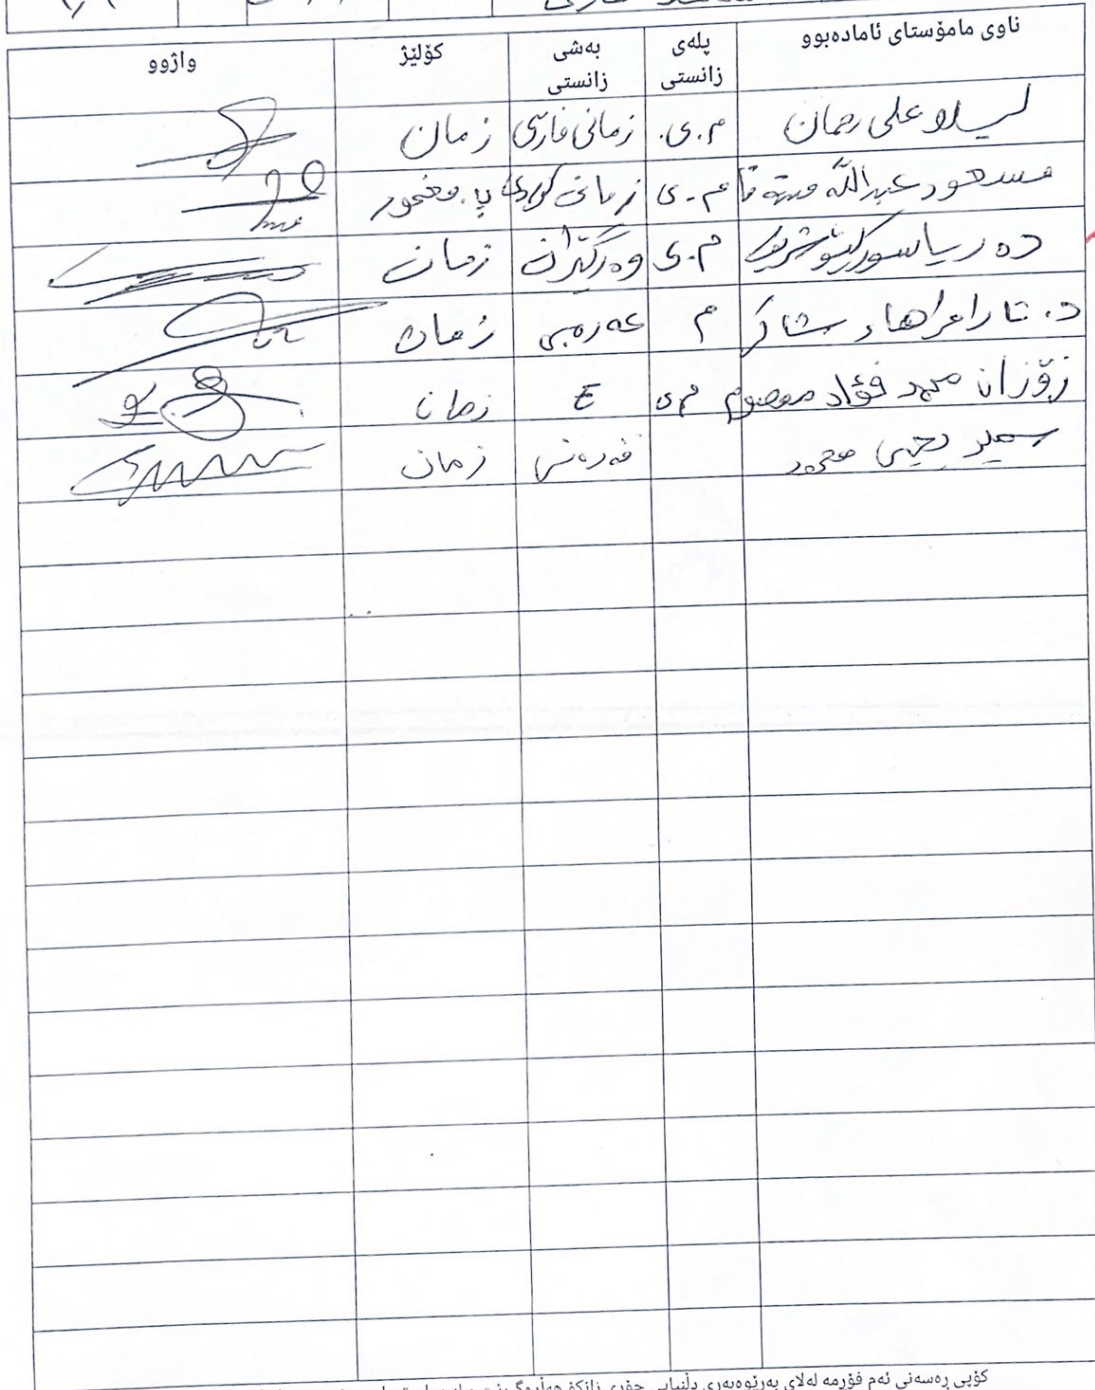 ناوی مامۆستای ئامادەبوو پلەی زانستی بەشی زانستی کۆلێژ واژوو
لیلا علی رحمان م.ی. زمانی فارسی زمان
مسعود عبدالله م.ی زمانی کوردی پ. مخمور
دەریا م.ی وەرگێڕان زمان
د. تارا فرهاد شاکر م عەرەبی زمان
زۆزان محمد فؤاد معصوم م.ی E زمان
سمیر یحیی محمد فەرەنسی زمان
کۆپی ڕەسەنی ئەم فۆرمە لەلای بەڕێوەبەری دڵنیایی جۆری زانکۆ